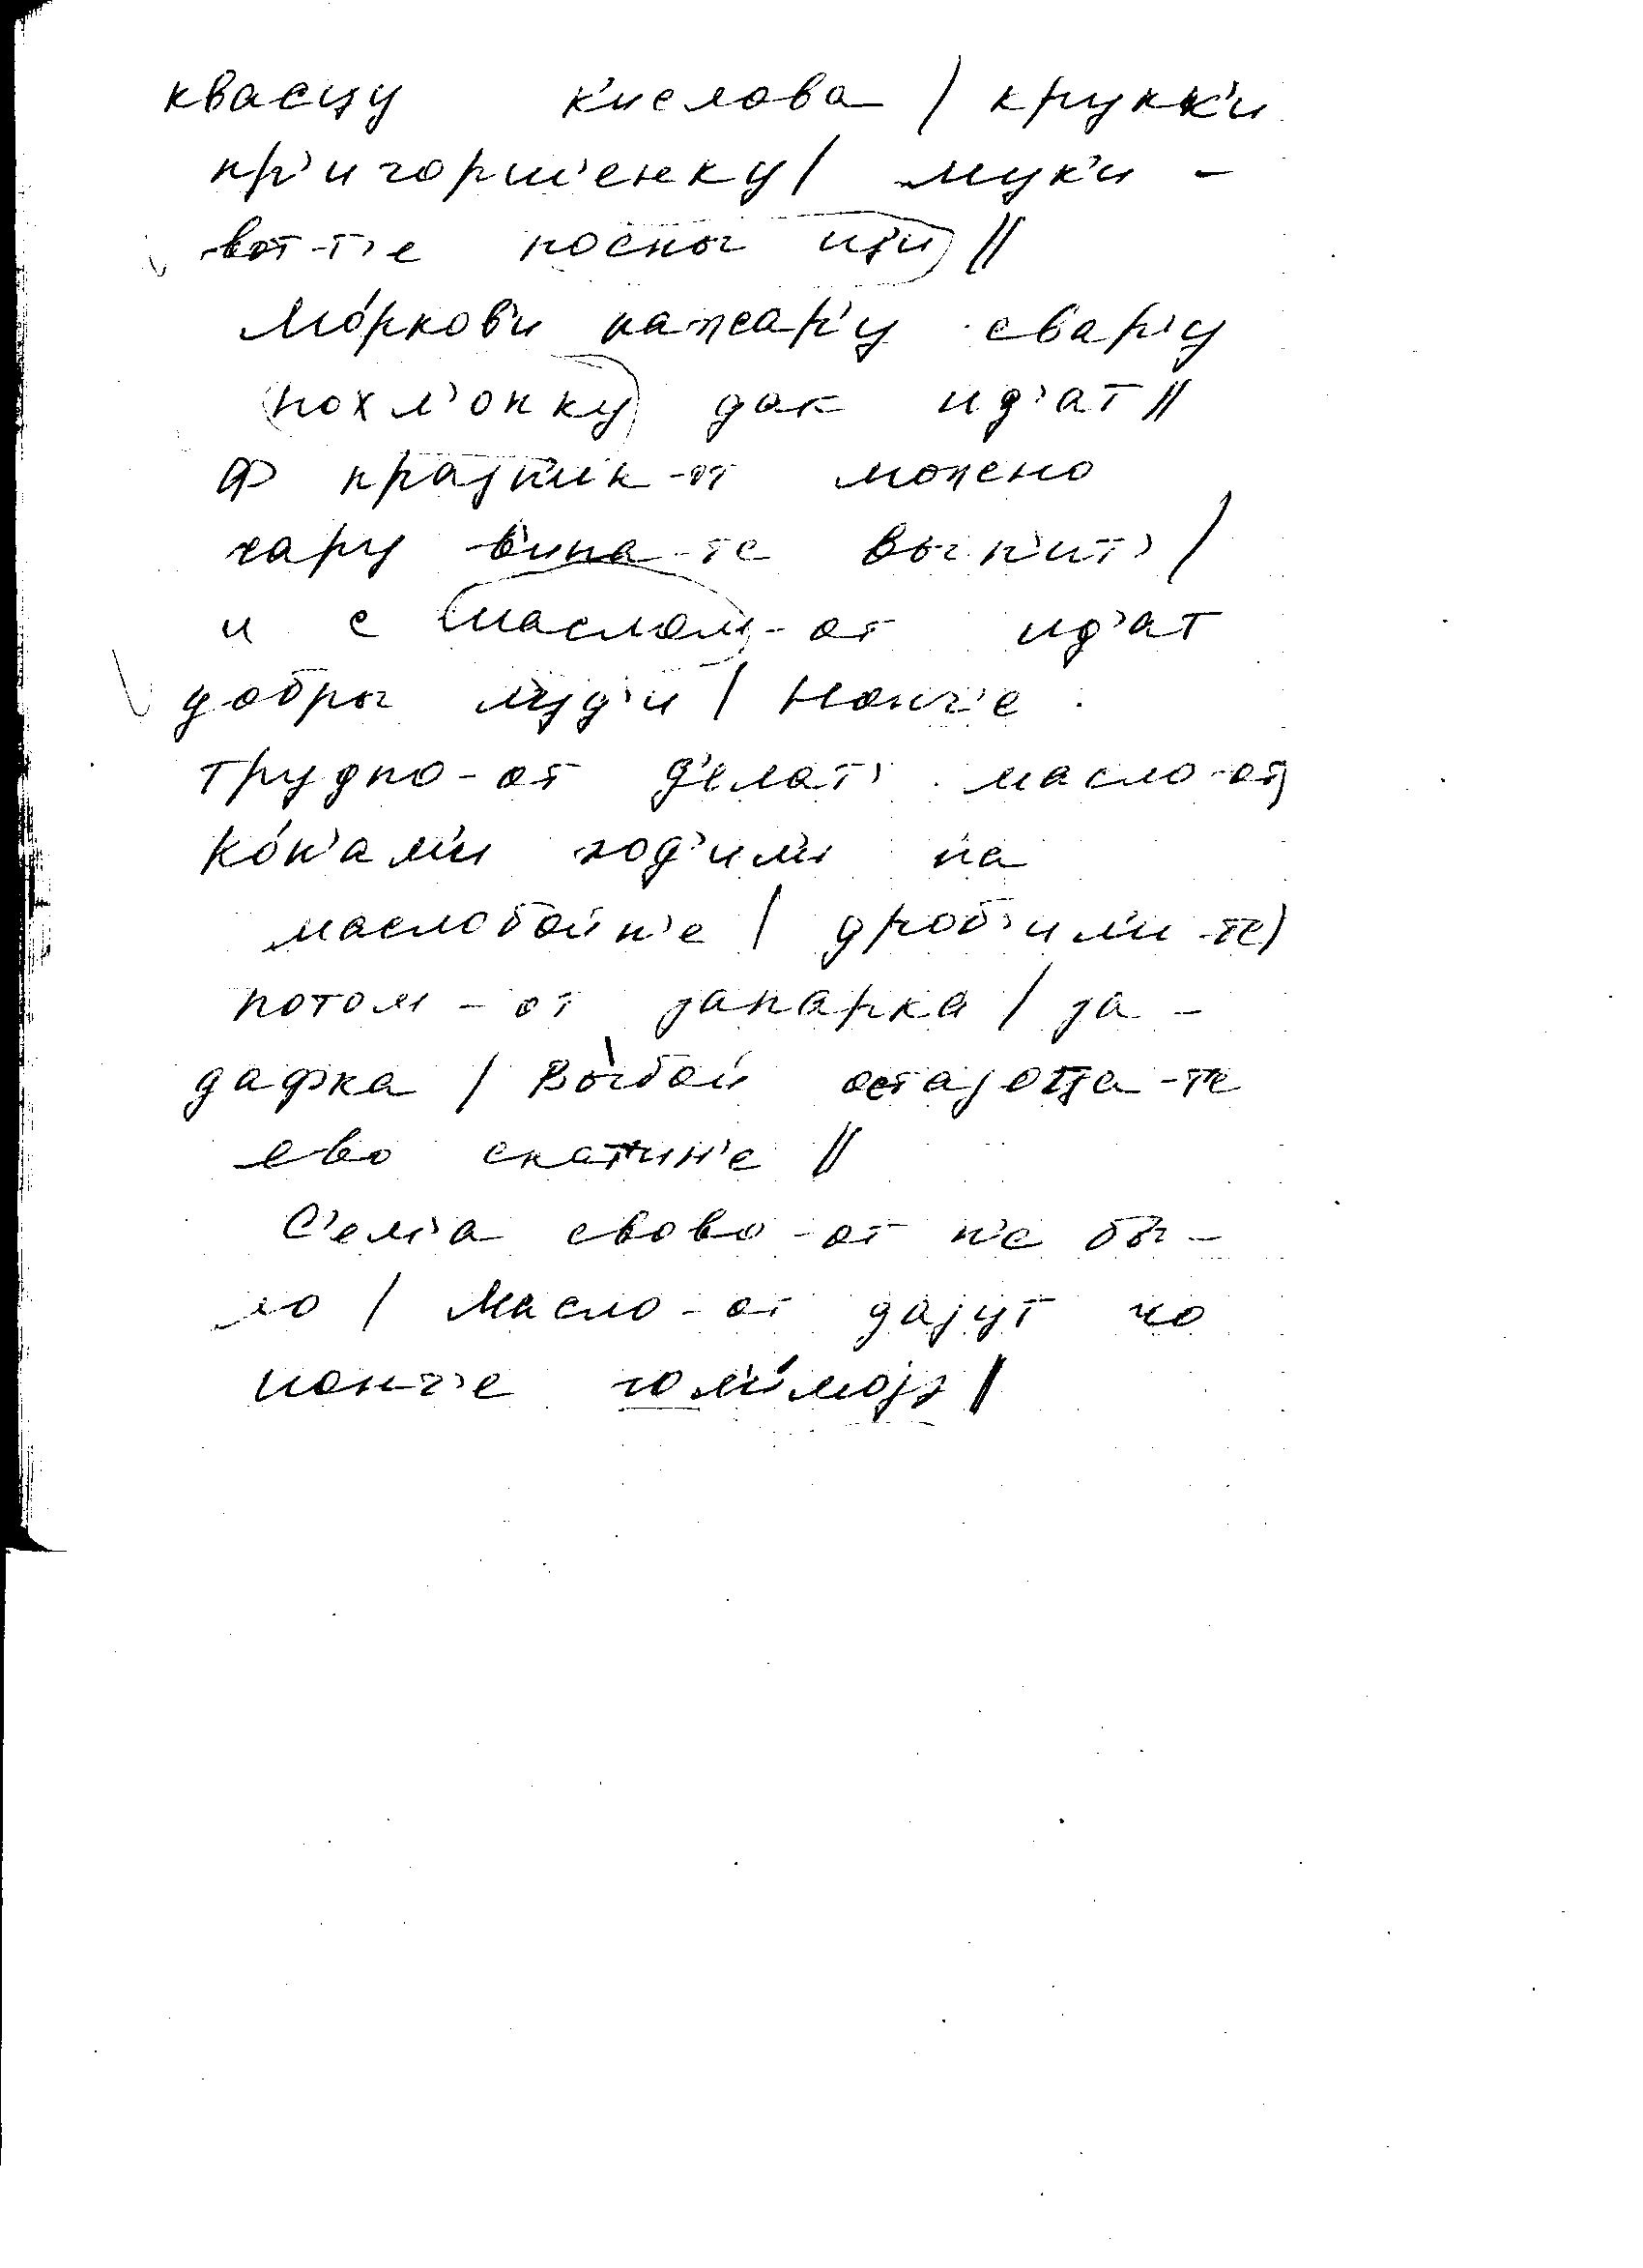 квасцу к'ислова / крупк'и
пр'игорш'енку / мук'и -
вот-т'е посны шти //
мо́рков'и нажар'у свар'у
похл'опку дак ид'ат //
Ф празник-от можено
чару в'ина-те вып'ит' /
и с маслом-от ид'ат
добры л'уд'и / Нонч'е
трудно-от д'елат' масло-от
ко́н'ам'и ход'ил'и на
маслобойн'е / дроб'ил'и-те /
потом-от запарка / за-
дафка / Вы́бой остајотца-те
ево скатин'е //
С'ем'а свово-от н'е бы-
ло / Масло-от дајут но
нонч'е